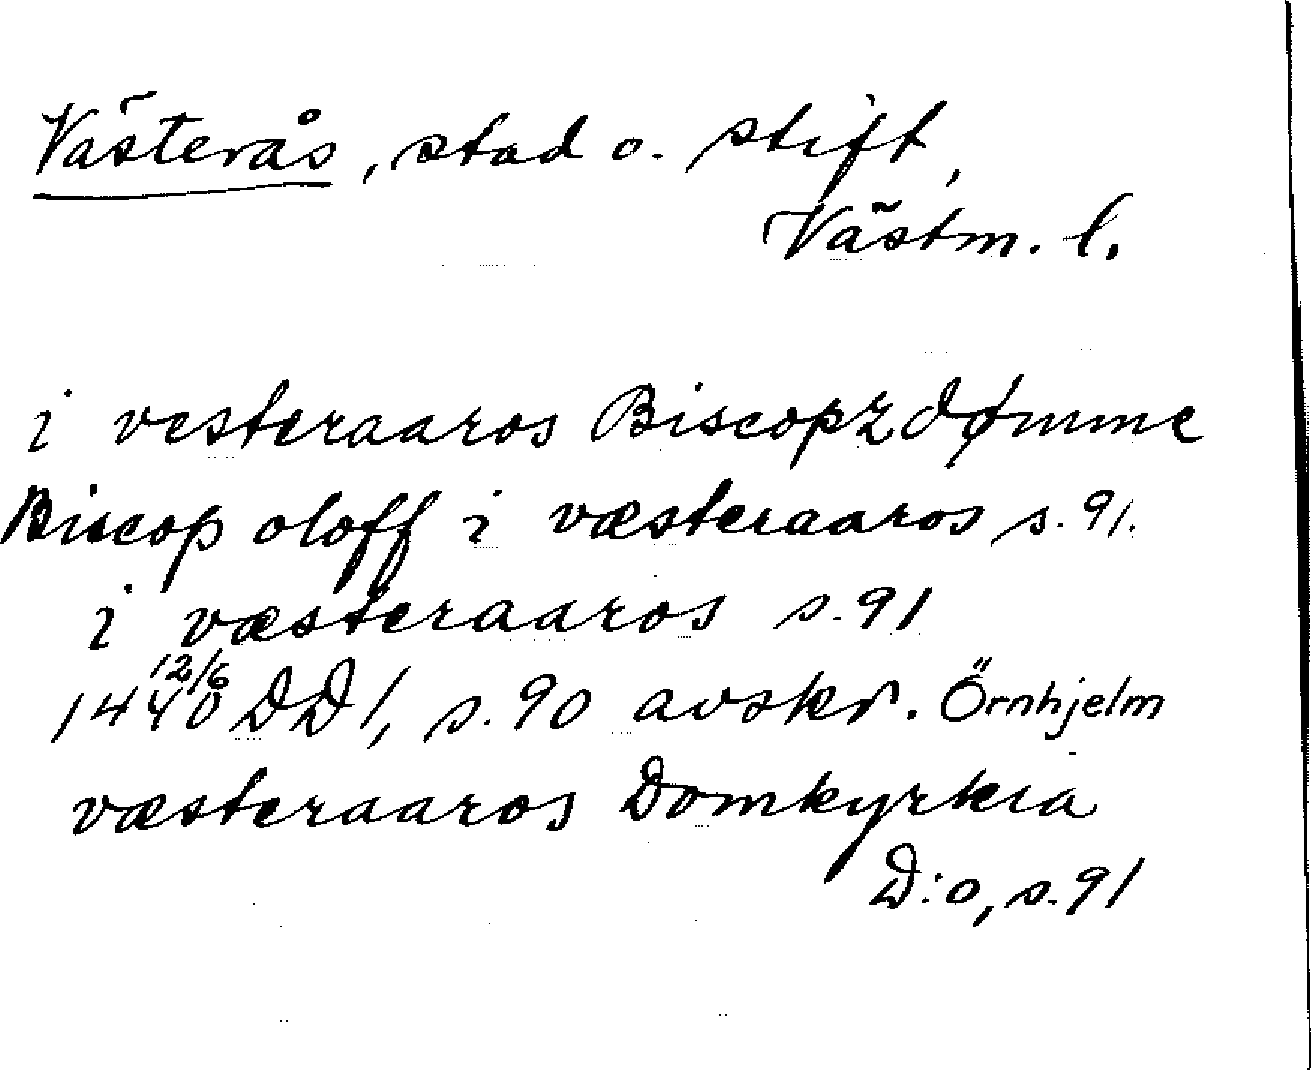 Västerås, stad o. stift,
Västm. l.
i vesteraaros Biscopz dømme
Biscop oloff i væsteraaros s. 91.
i væsteraaros s. 91
12/6
1440 DD1, s. 90 avskr. Örnhjelm
væsteraaros Domkyrkia
D:o, s. 91